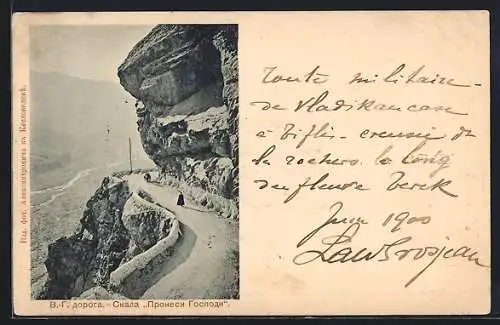 Изд. фот. Александровича въ Кисловодскѣ.
В.-Г. дорога. – Скала „Пронеси Господи“.
Route militaire
de Vladikaucase
à Tiflis. creusée de
la rochers. le long
du fleuve Terek
Juin 1900
Grosjean